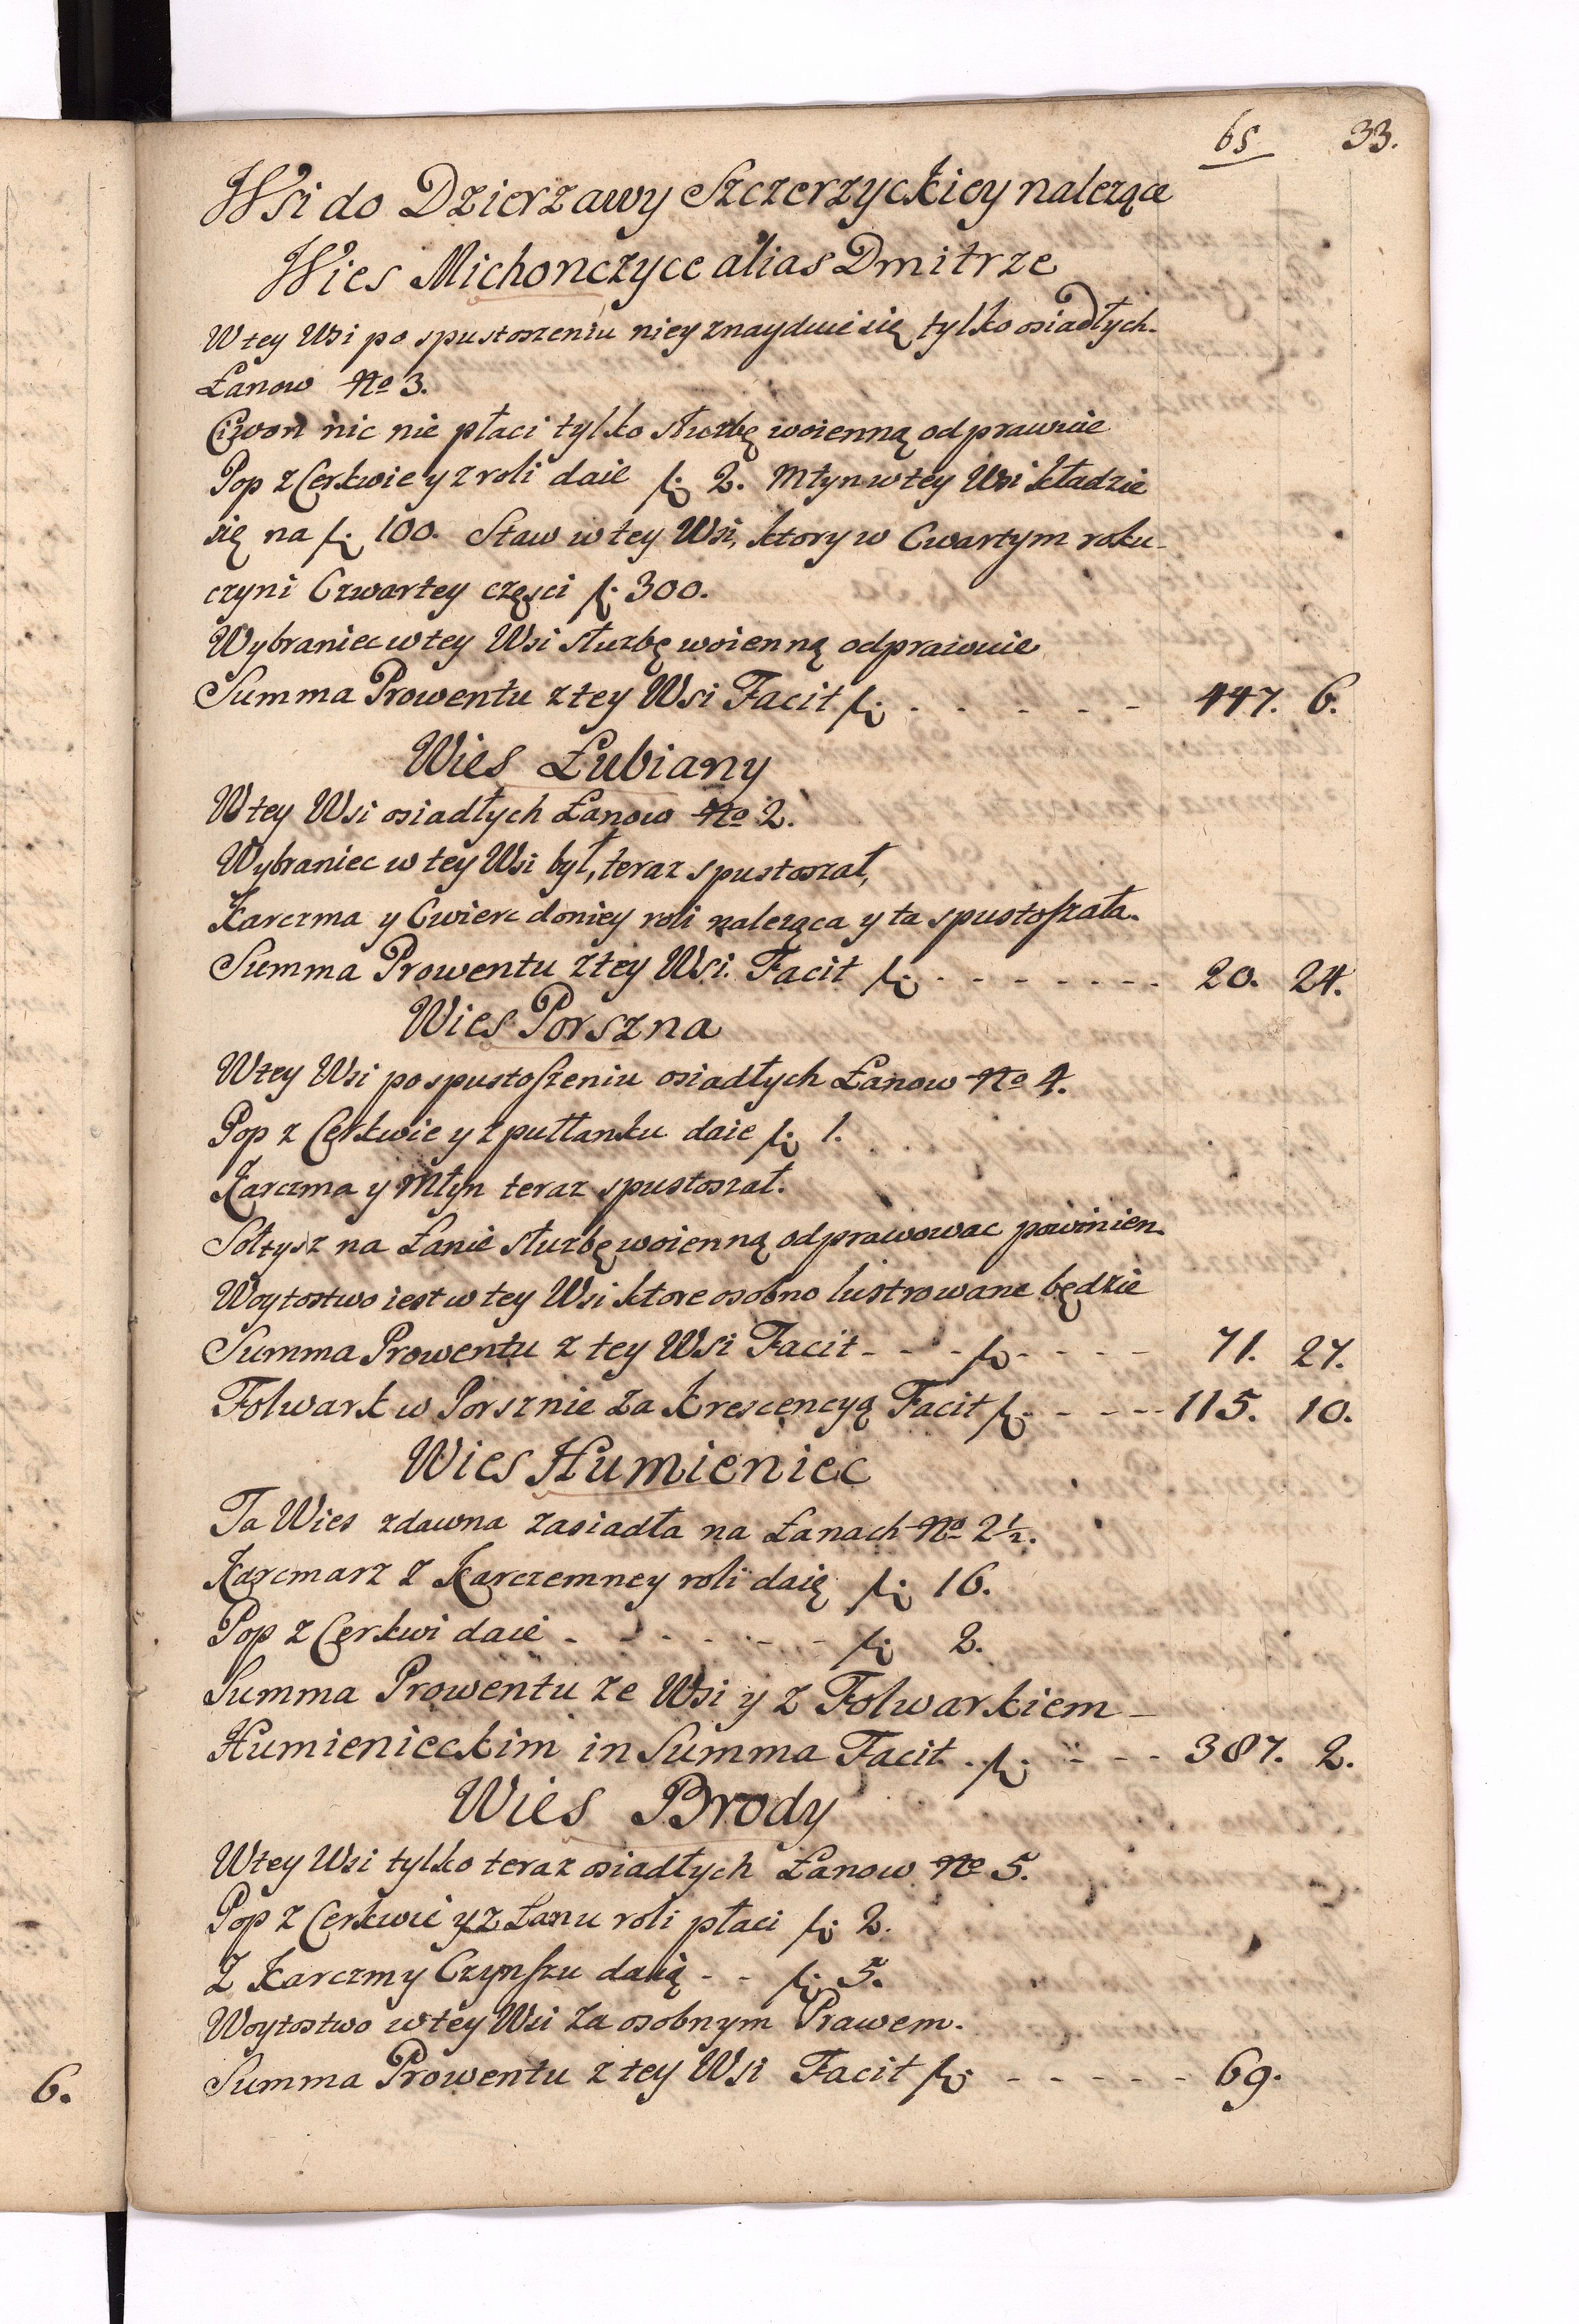 65 33.
Wsi do Dzierzawy Szczerzyckiey nalezące
Wies Michonczyce alias Dmitrze
W tey Wsi po spustoszeniu niey znayduie się tylko osiadłych
Łanow No 3.
Ciwon nic nie płaci tylko służbę woienną odprawuie
Pop z Cerkwie y z roli daie f. 2. Młyn w tey Wsi kładzie
się na f. 100. Staw w tey Wsi, ktory w Cwartym roku
czyni Czwartey częsci f. 300.
Wybraniec w tey Wsi służbę woienną odprawuie
Summa Prowentu z tey Wsi Facit f. - - - - - - 447. 6.
Wies Łubiany
W tey Wsi osiadłych Łanow No 2.
Wybraniec w tey Wsi był, teraz spustoszał,
Karczma y Cwierc do niey roli naleząca y ta spustoszała.
Summa Prowentu z tey Wsi. Facit f. - - - - - - - 20. 24.
Wies Porszna
W tey Wsi po spustoszeniu osiadłych Łanow No 4.
Pop z Cerkwie y z pułłanku daie f. 1.
Karczma y Młyn teraz spustoszał.
Sołtysz na Łanie służbę woienną odprawowac powinien.
Woytostwo iest w tey Wsi ktore osobno lustrowane będzie
Summa Prowentu z tey Wsi Facit - - - f. - - - - 71. 27.
Folwark w Porsznie za Krescencyą Facit f. - - - - 115. 10.
Wies Humieniec
Ta Wies zdawna zasiadła na Łanach No 2½.
Karcmarz z Karczemney roli daią f. 16.
Pop z Cerkwi daie - - - - - - - f. 2.
Summa Prowentu ze Wsi y z Folwarkiem
Humienieckim in Summa Facit . f. - - - 387. 2.
Wies Brody
W tey Wsi tylko teraz osiadłych Łanow No 5.
Pop z Cerkwie y z Łanu roli płaci f. 2.
Z Karczmy Czynszu daią - - f. 5.
Woytostwo w tey Wsi za osobnym Prawem.
Summa Prowentu z tey Wsi Facit f. - - - - - 69.
6.